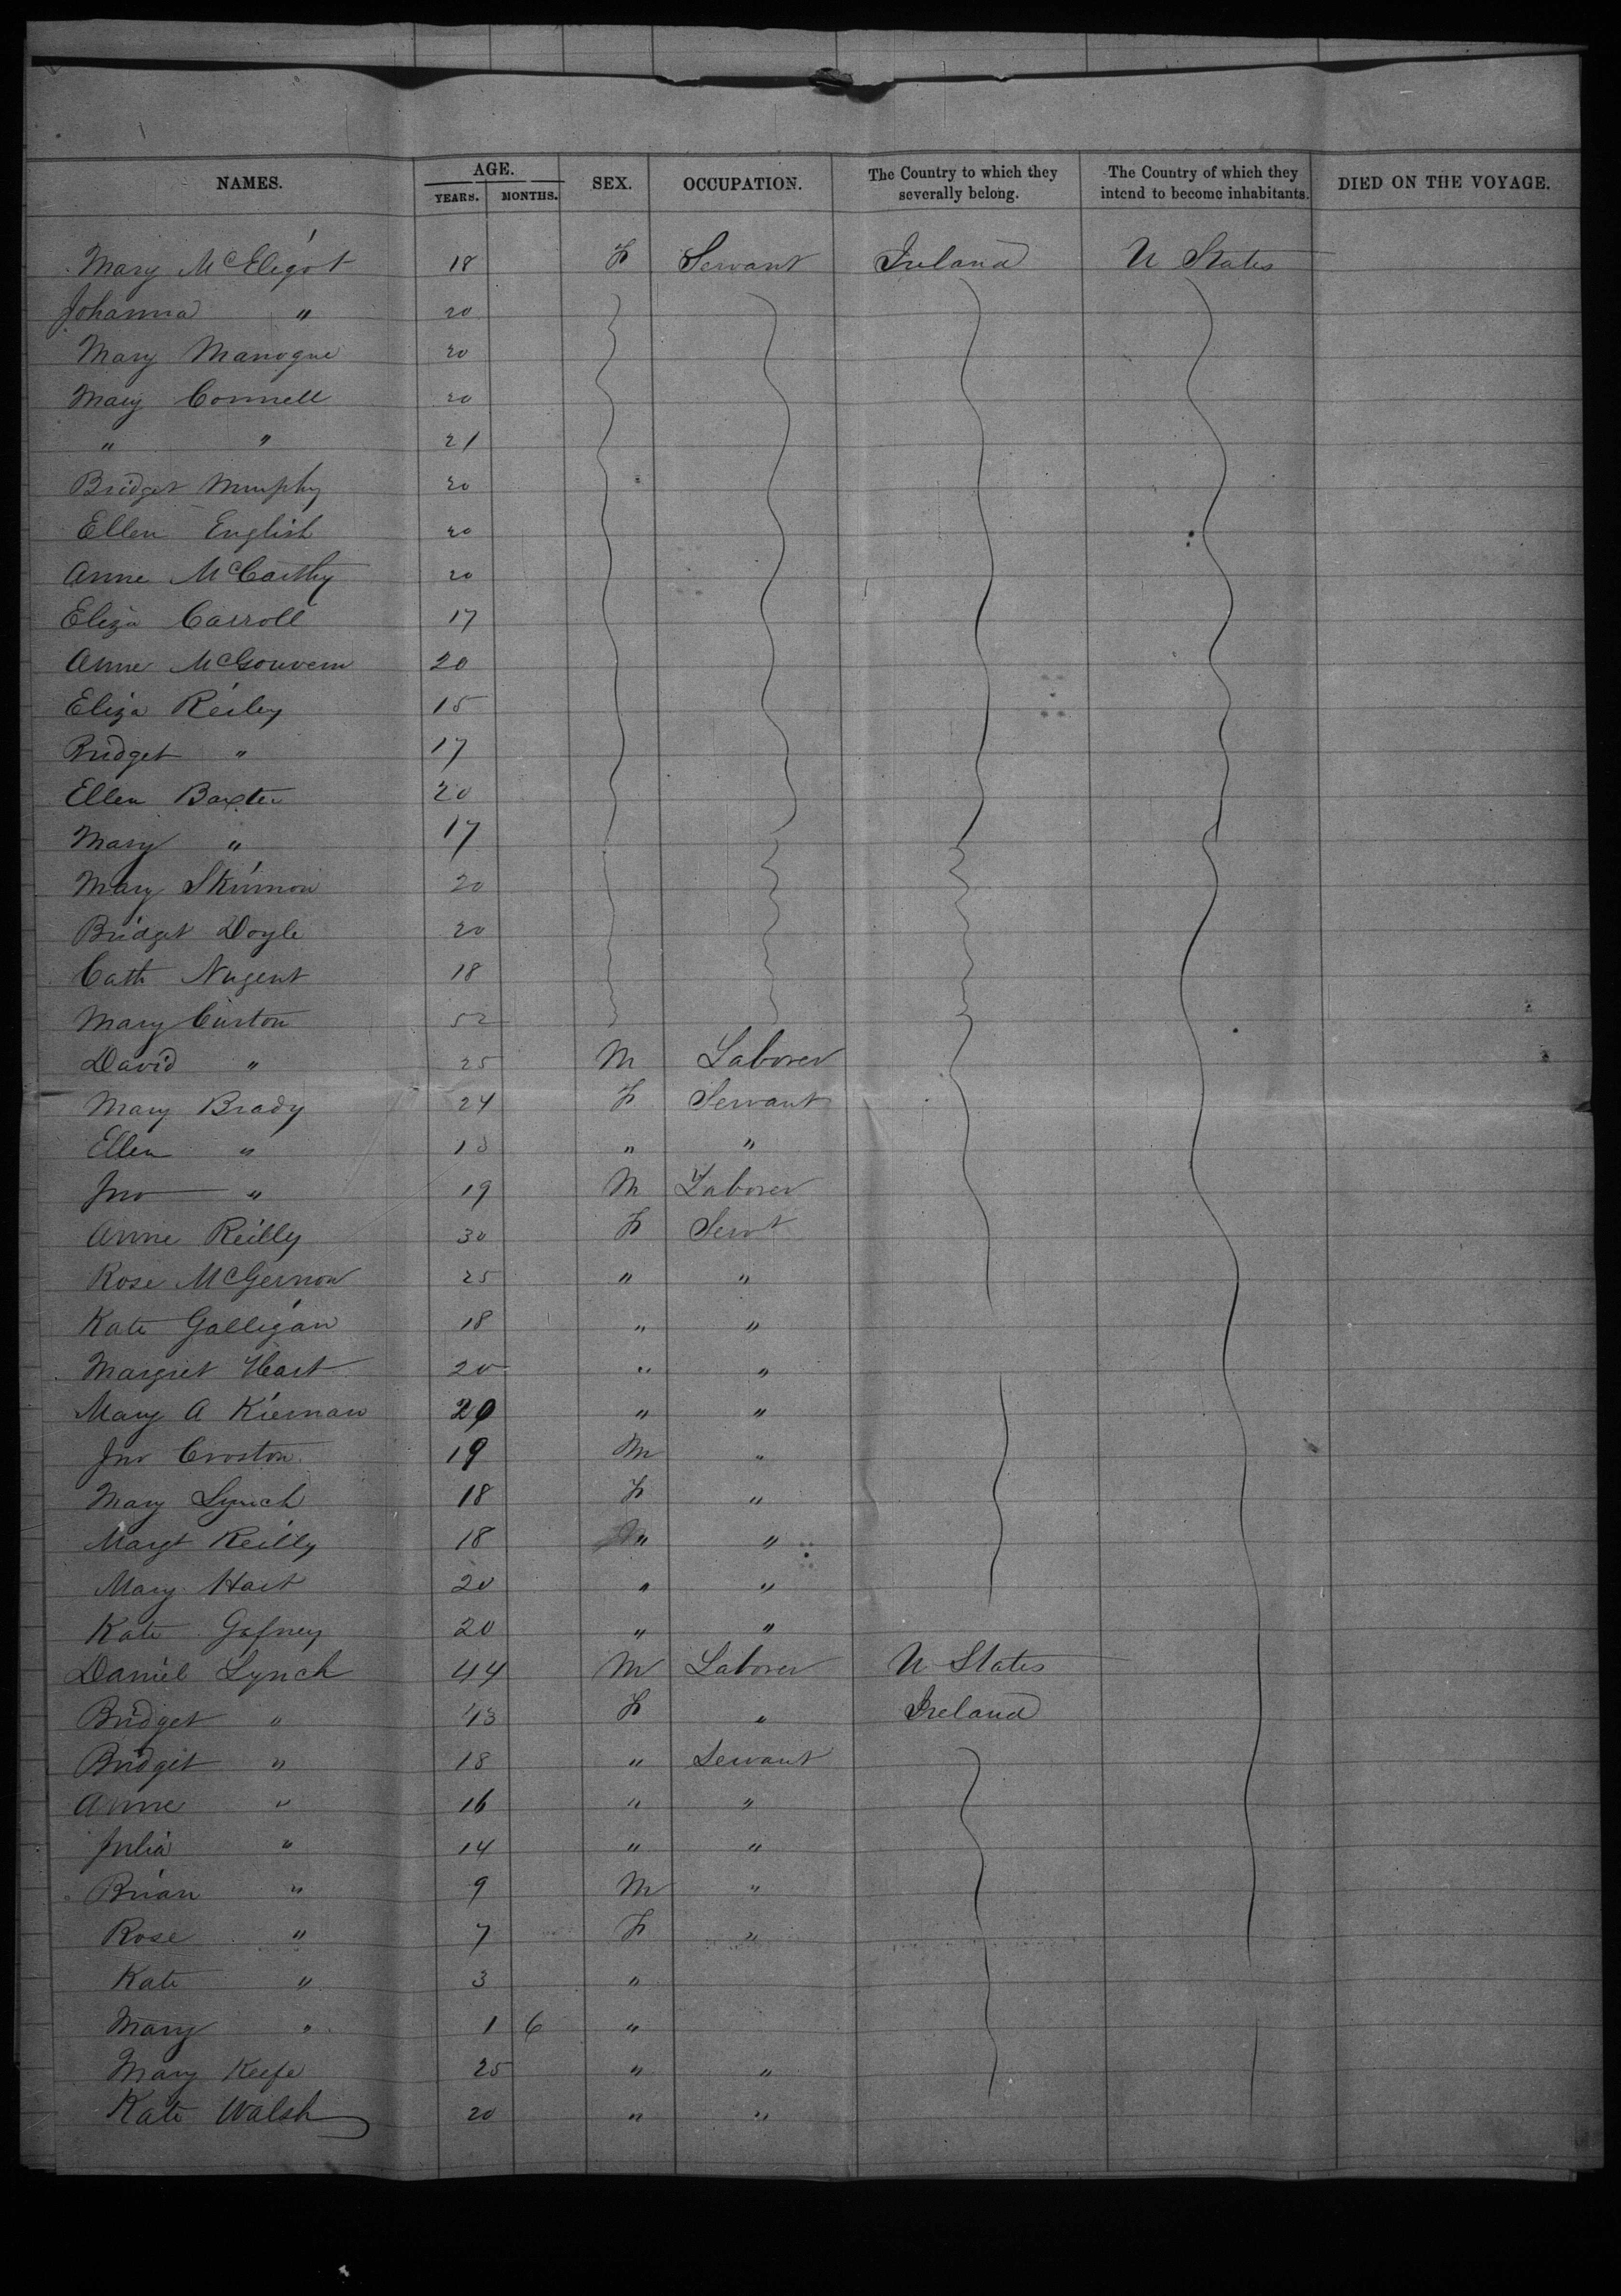 NAMES. AGE. YEARS. MONTHS. SEX. OCCUPATION. The Country to which they severally belong. The Country of which they intend to become inhabitants. DIED ON THE VOYAGE.
Mary McEligot 18 F Servant Ireland U States
Johanna " 20
Mary Manogue 20
Mary Connell 20
" " 21
Bridget Murphy 20
Ellen English 20
Anne McCarthy 20
Eliza Carroll 17
Anne McGouvern 20
Eliza Reiley 15
Bridget " 17
Ellen Baxter 20
Mary " 17
Mary Skinnion 20
Bridget Doyle 20
Cath Nugent 18
Mary Curton 52
David " 25 M Laborer
Mary Brady 24 F Servant
Ellen " 18 " "
Jno " 19 M Laborer
Anne Reilly 30 F Servt
Rose McGernon 25 " "
Kate Galligan 18 " "
Margret Hart 20 " "
Mary A Kiernan 20 " "
Jno Croston 19 M "
Mary Lynch 18 F "
Margt Reilly 18 " "
Mary Hart 20 " "
Kate Gafney 20 " "
Daniel Lynch 44 M Laborer U States
Bridget " 43 F " Ireland
Bridget " 18 " Servant
Anne " 16 " "
Julia " 14 " "
Brian " 9 M "
Rose " 7 F "
Kate " 3 "
Mary " 1 6 "
Mary Keefe 25 " "
Kate Walsh 20 " "